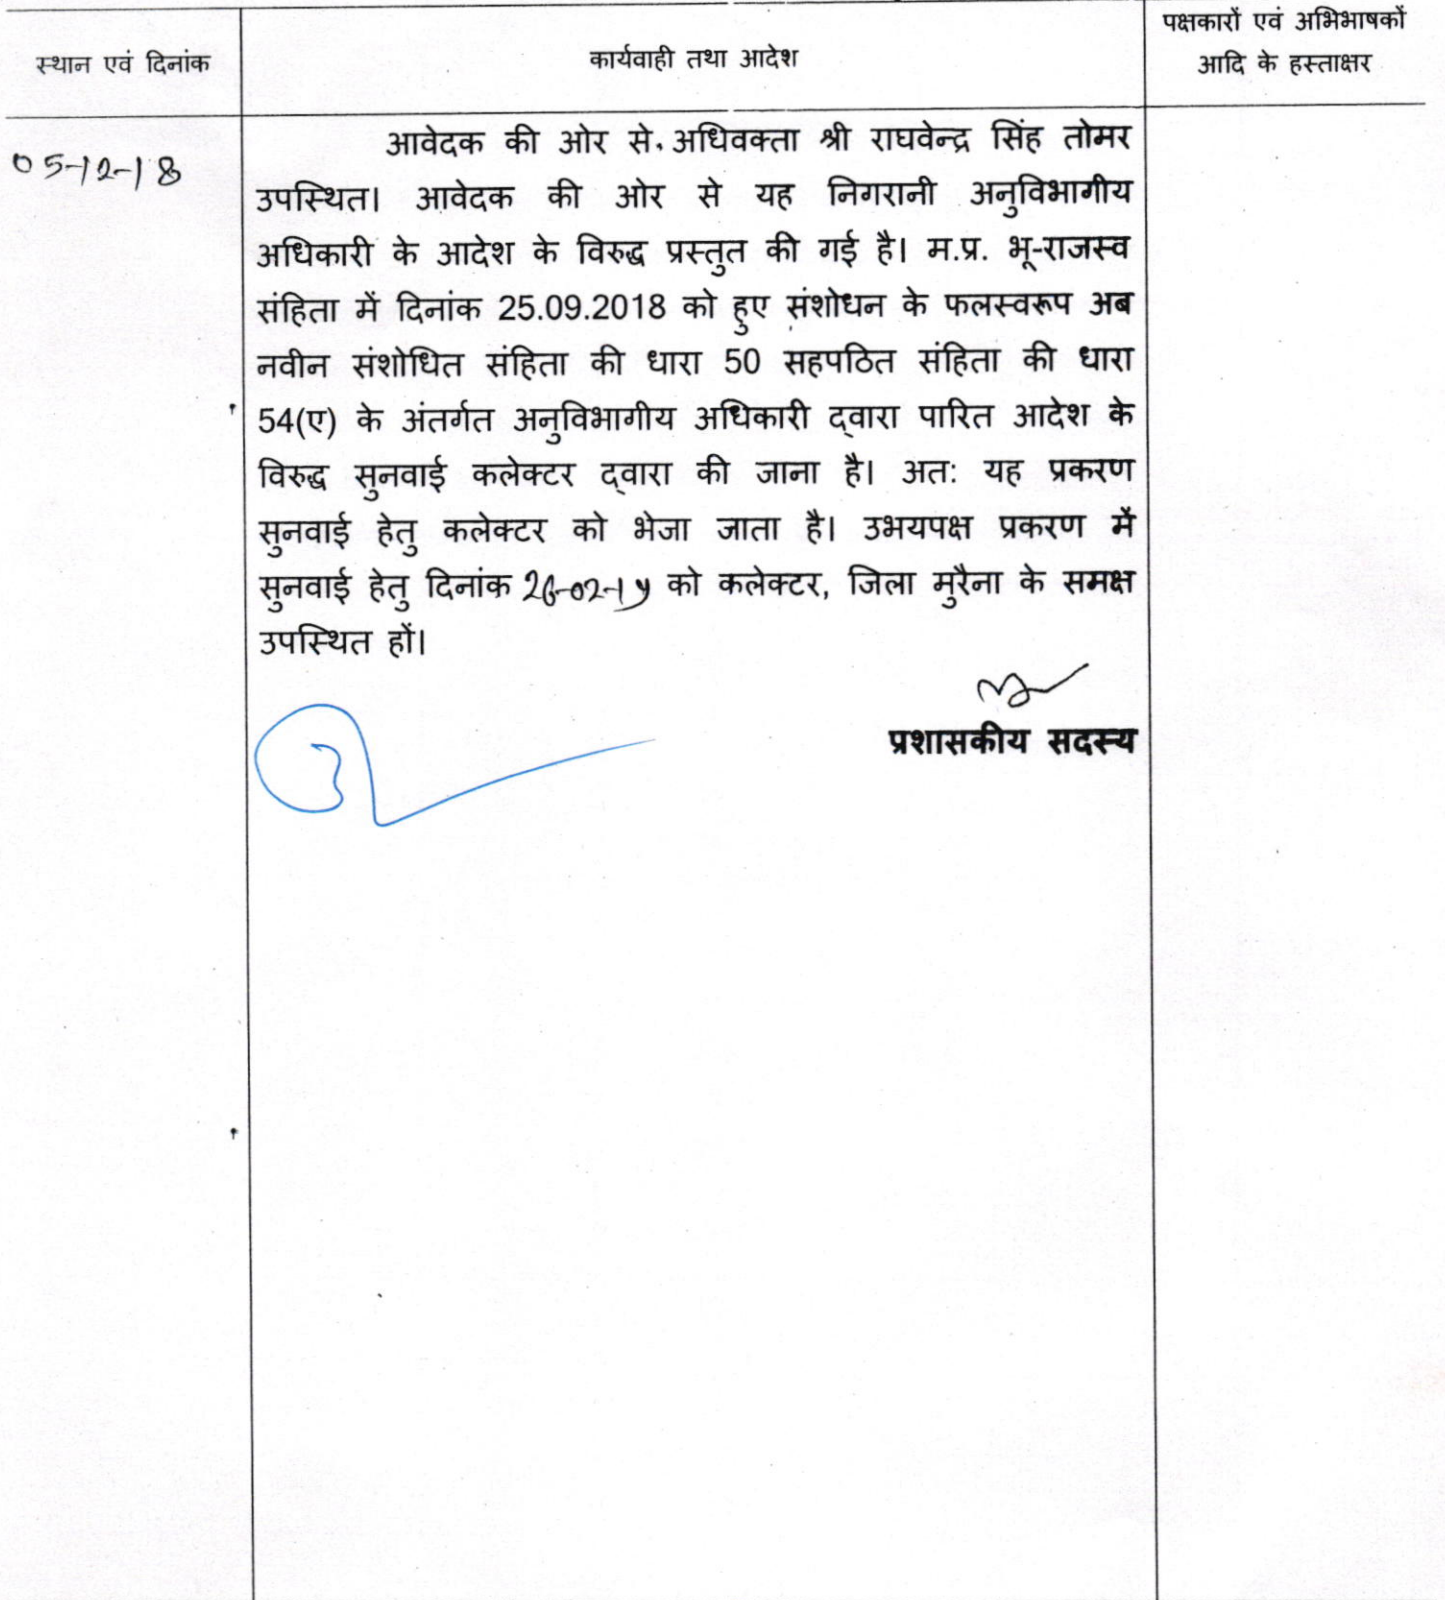 स्थान एवं दिनांक
कार्यवाही तथा आदेश
पक्षकारों एवं अभिभाषकों
आदि के हस्ताक्षर
05-12-18
आवेदक की ओर से अधिवक्ता श्री राघवेन्द्र सिंह तोमर
उपस्थित। आवेदक की ओर से यह निगरानी अनुविभागीय
अधिकारी के आदेश के विरुद्ध प्रस्तुत की गई है। म.प्र. भू-राजस्व
संहिता में दिनांक 25.09.2018 को हुए संशोधन के फलस्वरूप अब
नवीन संशोधित संहिता की धारा 50 सहपठित संहिता की धारा
54(ए) के अंतर्गत अनुविभागीय अधिकारी द्वारा पारित आदेश के
विरुद्ध सुनवाई कलेक्टर द्वारा की जाना है। अतः यह प्रकरण
सुनवाई हेतु कलेक्टर को भेजा जाता है। उभयपक्ष प्रकरण में
सुनवाई हेतु दिनांक 26-02-19 को कलेक्टर, जिला मुरैना के समक्ष
उपस्थित हों।
प्रशासकीय सदस्य